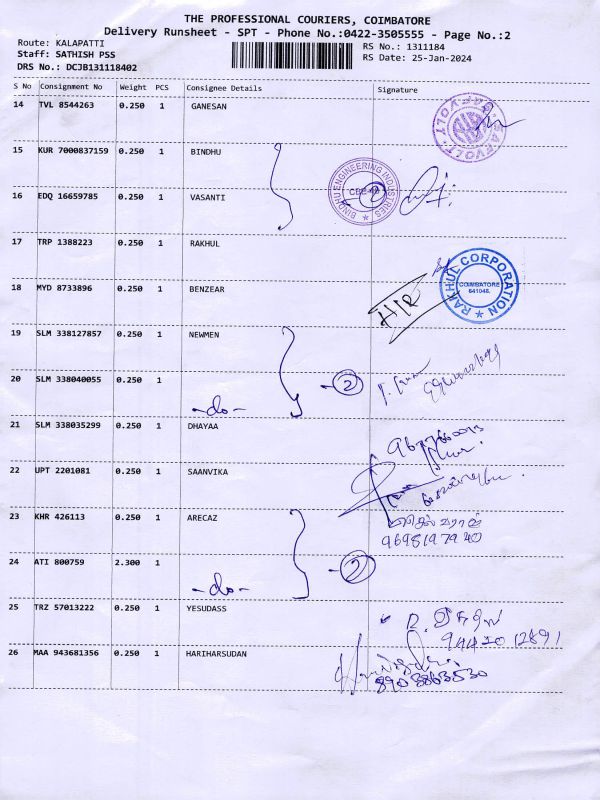 THE PROFESSIONAL COURIERS, COIMBATORE
Delivery Runsheet - SPT - Phone No.:0422-3505555 - Page No.:2
Route: KALAPATTI
Staff: SATHISH PSS
DRS No.: DCJB131118402
RS No.: 1311184
RS Date: 25-Jan-2024
S No Consignment No Weight PCS Consignee Details Signature
14 TVL 8544263 0.250 1 GANESAN
15 KUR 7000837159 0.250 1 BINDHU
BINDHU ENGINEERING INDUSTRIES
2
16 EDQ 16659785 0.250 1 VASANTI
17 TRP 1388223 0.250 1 RAKHUL
RAKHUL CORPORATION
COIMBATORE
641048.
18 MYD 8733896 0.250 1 BENZEAR
H/R
19 SLM 338127857 0.250 1 NEWMEN
20 SLM 338040055 0.250 1
-do-
2
21 SLM 338035299 0.250 1 DHAYAA
22 UPT 2201081 0.250 1 SAANVIKA
23 KHR 426113 0.250 1 ARECAZ
9698197940
24 ATI 800759 2.300 1
-do-
2
25 TRZ 57013222 0.250 1 YESUDASS
9442012891
26 MAA 943681356 0.250 1 HARIHARSUDAN
8903863530